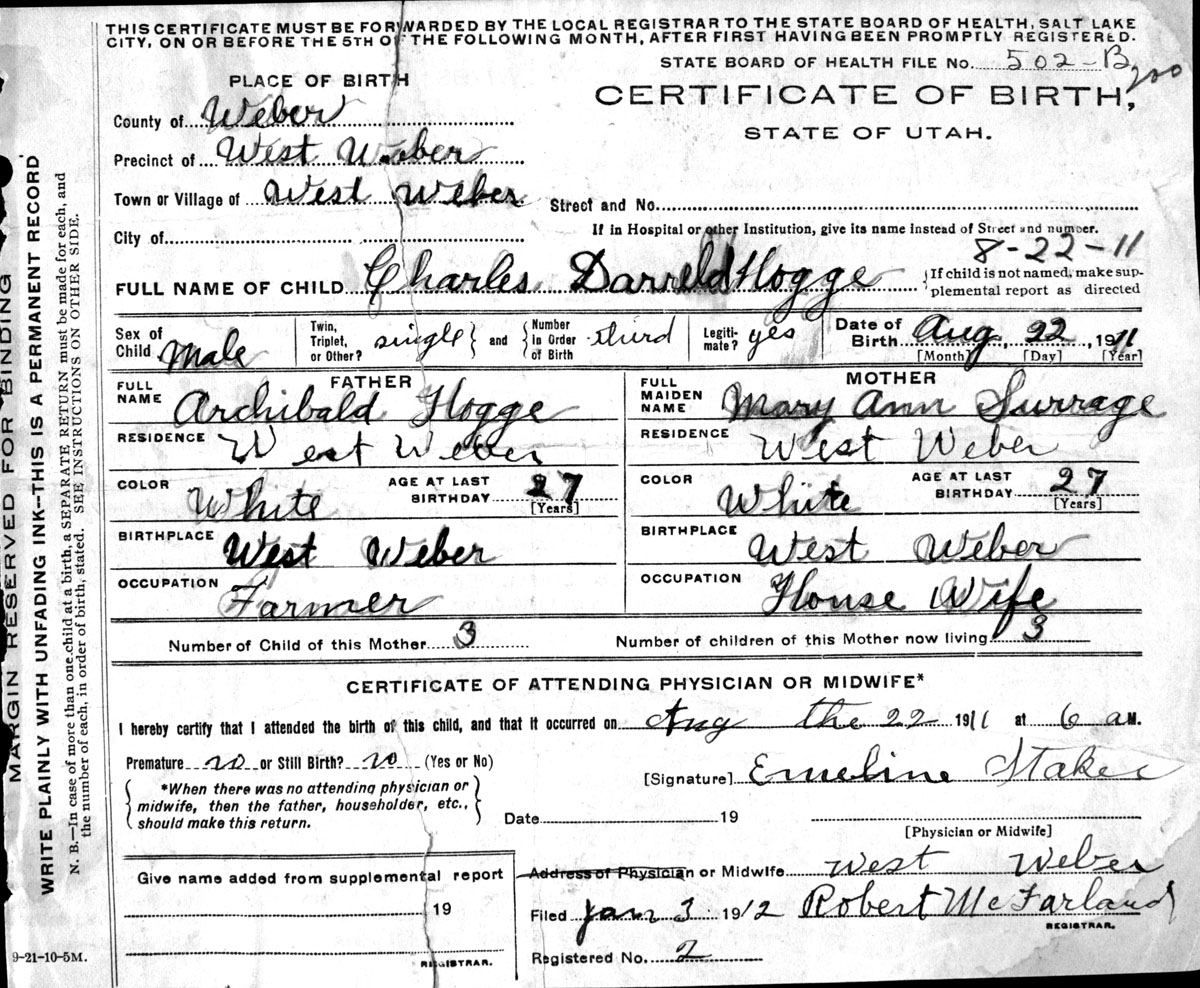 THIS CERTIFICATE MUST BE FORWARDED BY THE LOCAL REGISTRAR TO THE STATE BOARD OF HEALTH, SALT LAKE
CITY, ON OR BEFORE THE 5TH OF THE FOLLOWING MONTH, AFTER FIRST HAVING BEEN PROMPTLY REGISTERED.
STATE BOARD OF HEALTH FILE No. 502-B
200
PLACE OF BIRTH
CERTIFICATE OF BIRTH,
STATE OF UTAH.
County of Weber
Precinct of West Weber
Town or Village of West Weber
Street and No.
City of
If in Hospital or other Institution, give its name instead of Street and number.
8-22-11
FULL NAME OF CHILD Charles Darreld Hogge
{If child is not named, make sup-
plemental report as directed
Sex of Child Male
Twin, Triplet, or Other? single } and { Number In Order of Birth third
Legiti-mate? yes
Date of Birth Aug, 22, 1911
[Month] [Day] [Year]
FATHER
FULL NAME Archibald Hogge
RESIDENCE West Weber
COLOR White AGE AT LAST BIRTHDAY 27
[Years]
BIRTHPLACE West Weber
OCCUPATION Farmer
MOTHER
FULL MAIDEN NAME Mary Ann Surrage
RESIDENCE West Weber
COLOR White AGE AT LAST BIRTHDAY 27
[Years]
BIRTHPLACE West Weber
OCCUPATION House Wife
Number of Child of this Mother 3 Number of children of this Mother now living 3
CERTIFICATE OF ATTENDING PHYSICIAN OR MIDWIFE*
I hereby certify that I attended the birth of this child, and that it occurred on Aug the 22 1911 at 6 a M.
Premature no or Still Birth? no (Yes or No)
[Signature] Emeline Staker
{ *When there was no attending physician or
midwife, then the father, householder, etc.,
should make this return. }
Date 19
[Physician or Midwife]
Give name added from supplemental report
19
REGISTRAR.
Address of Physician or Midwife West Weber
Filed Jan 3 1912 Robert McFarland
REGISTRAR.
Registered No. 2
9-21-10-5M.
MARGIN RESERVED FOR BINDING
WRITE PLAINLY WITH UNFADING INK—THIS IS A PERMANENT RECORD
N. B.—In case of more than one child at a birth, a SEPARATE RETURN must be made for each, and
the number of each, in order of birth, stated. SEE INSTRUCTIONS ON OTHER SIDE.